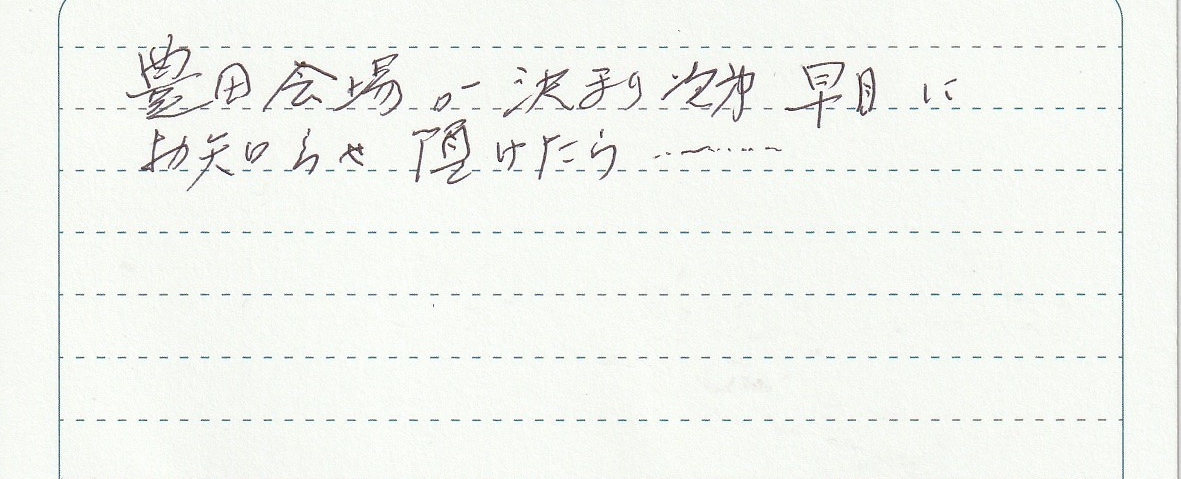 豊田会場が決まり次第早目に
お知らせ頂けたら……